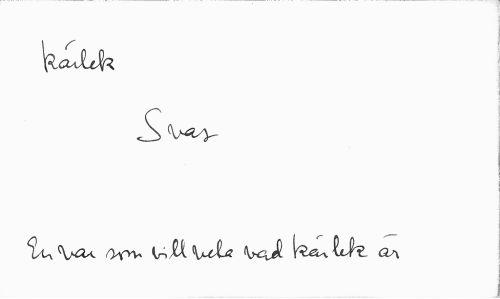 kärlek
Svar
En var som vill veta vad kärlek är